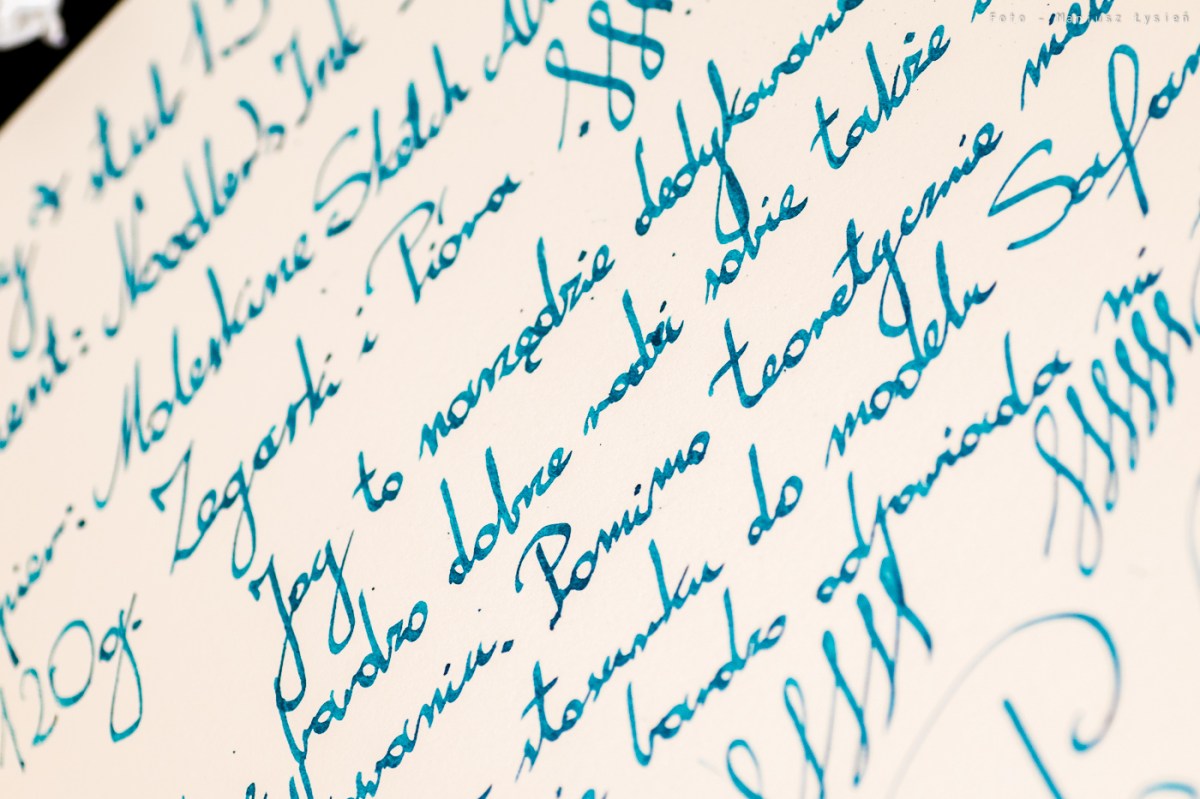 Foto - Mariusz Łysień
1.5
Noodler's Ink
pier: Moleskine Sketch
120g. Zegarki i Pióra
Joy to narzędzie dedykowane
bardzo dobrze radzi sobie także
waniu. Pomimo teoretycznie
stosunku do modelu Safar
bardzo odpowiada mi